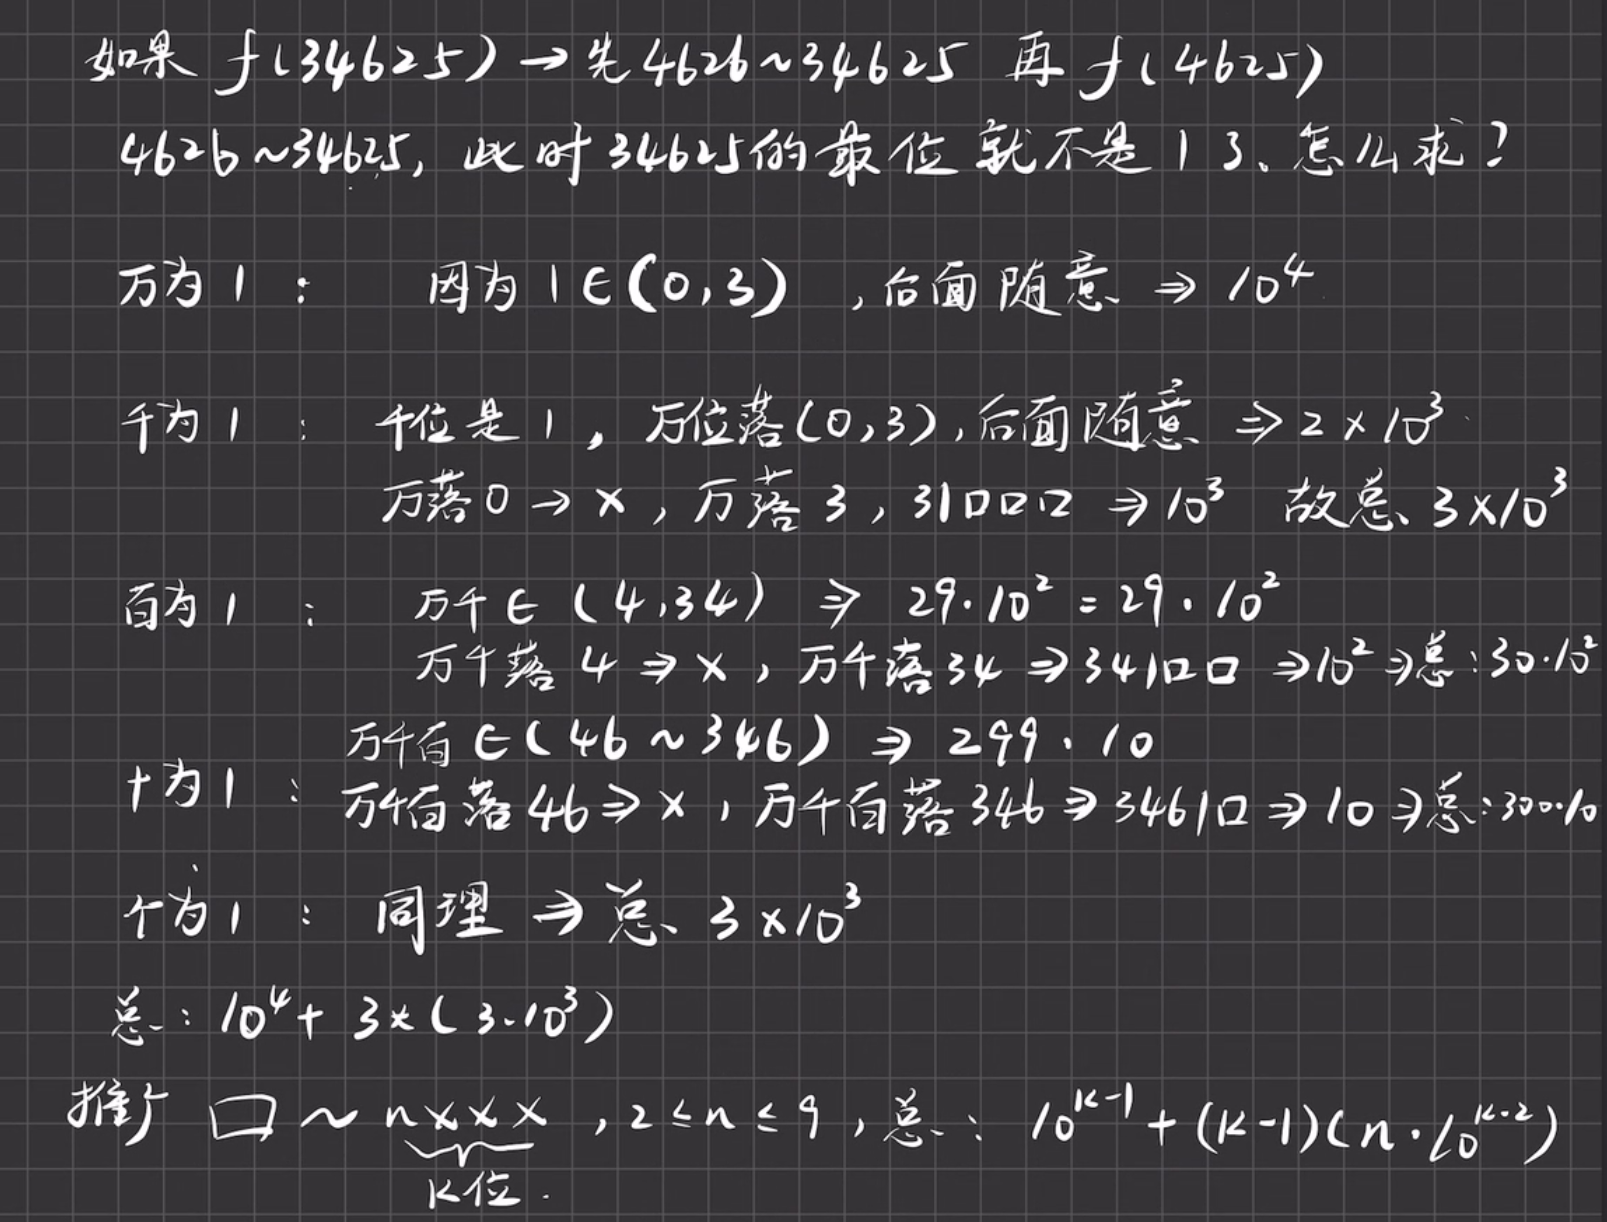 如果 f(34625) → 先 4626~34625 再 f(4625)
4626~34625, 此时34625的最位就不是1了、怎么求?
万为1 : 因为 1∈(0,3) ,后面随意 ⇒ 10^4
千为1 : 千位是1, 万位落(0,3),后面随意 ⇒ 2×10^3
万落0 → ×, 万落3, 31口口口 ⇒ 10^3 故总、3×10^3
百为1 : 万千∈(4,34) ⇒ 29·10^2 = 29·10^2
万千落4 ⇒ ×, 万千落34 ⇒ 341口口 ⇒ 10^2 ⇒ 总:30·10^2
万千百∈(46~346) ⇒ 299·10
十为1 : 万千百落46 ⇒ ×, 万千百落346 ⇒ 3461口 ⇒ 10 ⇒ 总:300·10
个为1 : 同理 ⇒ 总、3×10^3
总: 10^4 + 3×(3·10^3)
推广 口 ~ n×××, 2≤n≤9, 总: 10^{k-1} + (k-1)(n·10^{k-2})
k位.